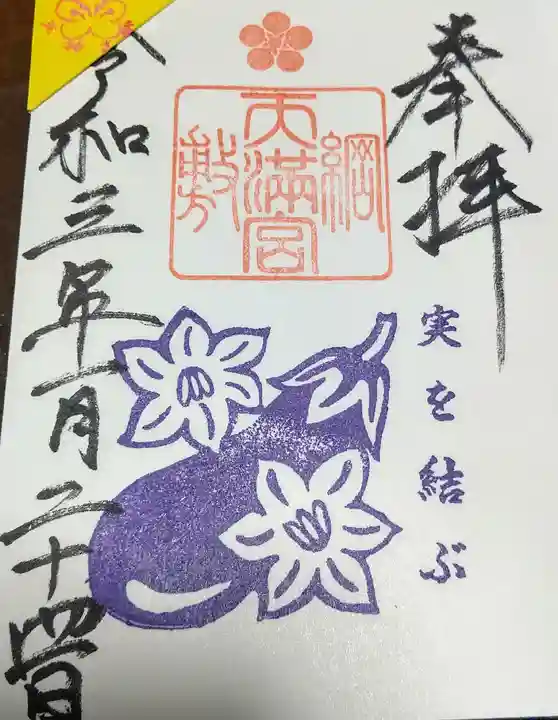 奉拝
実を結ぶ
綱敷天満宮
令和三年一月二十四日